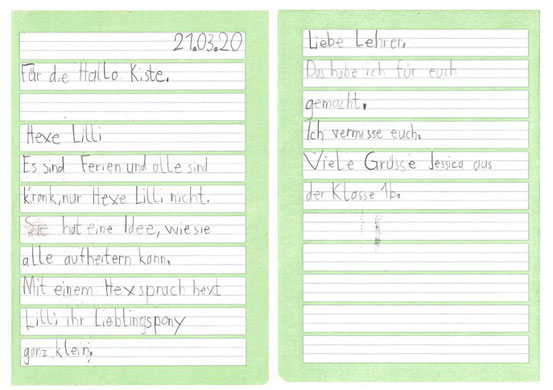 21.03.20
Für die Hallo Kiste.
Hexe Lilli
Es sind Ferien und alle sind
krank, nur Hexe Lilli nicht.
Sie hat eine Idee, wie sie
alle aufheitern kann.
Mit einem Hexspruch hext
Lilli ihr Lieblingspony
ganz klein.
Liebe Lehrer.
Das habe ich für euch
gemacht.
Ich vermisse euch.
Viele Grüsse Jessica aus
der Klasse 1b.